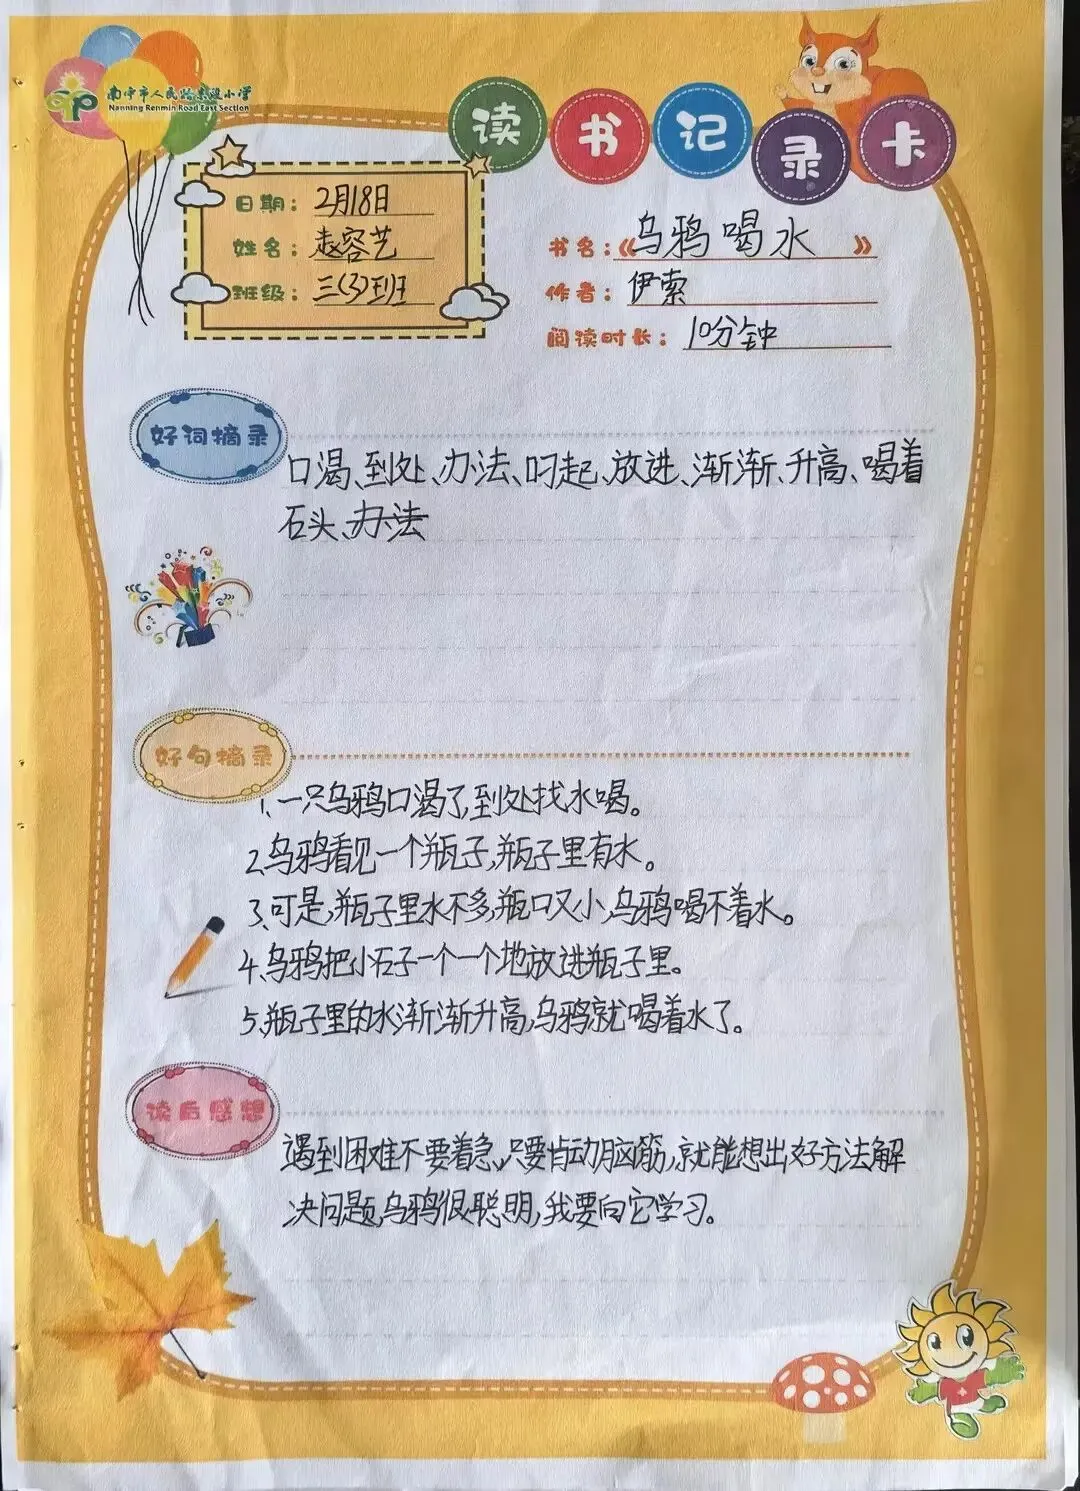 南宁市人民路东段小学
Nanning Renmin Road East Section
读书记录卡
日期：2月18日
姓名：赵容艺
班级：三(3)班
书名：《乌鸦喝水》
作者：伊索
阅读时长：10分钟
好词摘录
口渴、到处、办法、叼起、放进、渐渐、升高、喝着
石头、办法
好句摘录
1、一只乌鸦口渴了,到处找水喝。
2、乌鸦看见一个瓶子,瓶子里有水。
3、可是,瓶子里水不多,瓶口又小,乌鸦喝不着水。
4、乌鸦把小石子一个一个地放进瓶子里。
5、瓶子里的水渐渐升高,乌鸦就喝着水了。
读后感想
遇到困难不要着急,只要肯动脑筋,就能想出好方法解
决问题,乌鸦很聪明,我要向它学习。